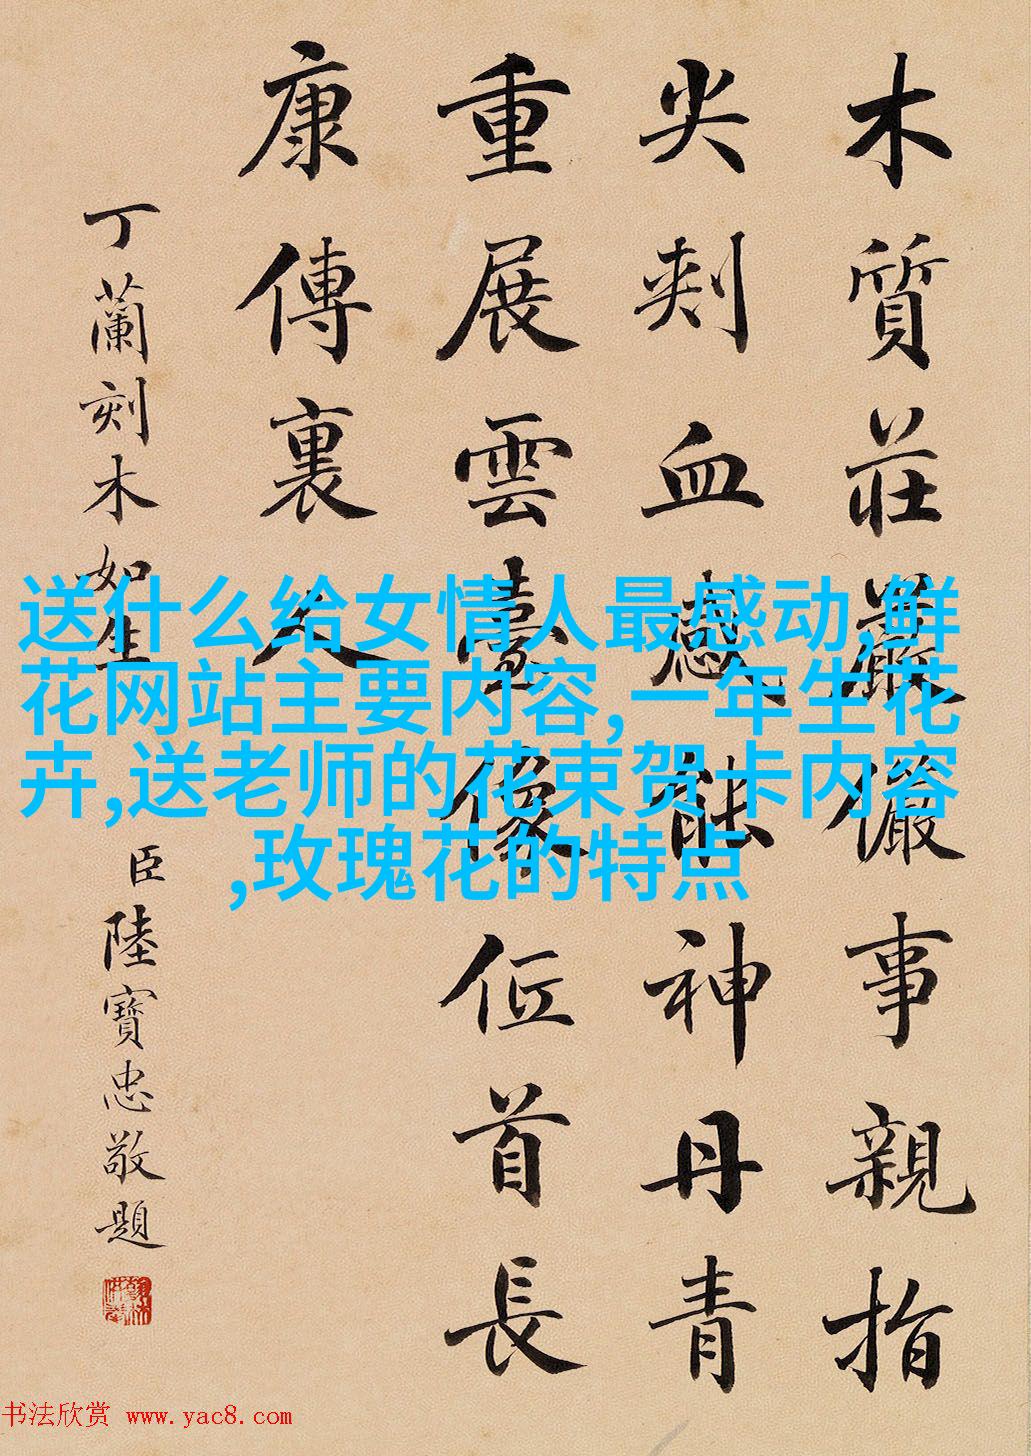 木質莊嚴儼事親指
尖刾血感能神丹青
重展雲臺像低首長
康傳裏人
丁蘭刻木如生
臣陸寶忠敬題
送什么给女情人最感动,鲜
花网站主要内容,一年生花
卉,送老师的花束贺卡内容
,玫瑰花的特点
书法欣赏 www.yac8.com